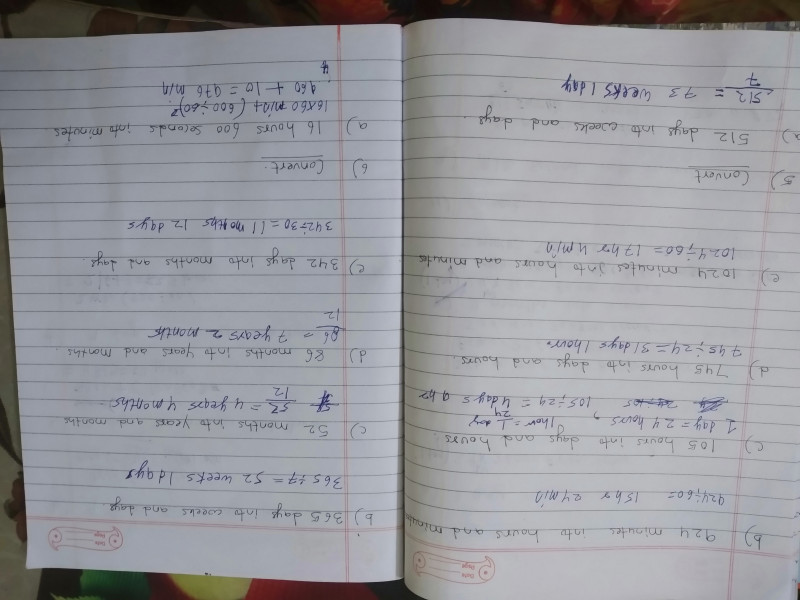 b) 924 minutes into hours and minutes
924÷60= 15hr 24min
c) 105 hours into days and hours.
1 day = 24 hours, 1hour = 1/24 day
105÷24 = 4 days 9 hr
d) 745 hours into days and hours.
745÷24 = 31 days 1 hour.
e) 1024 minutes into hours and minutes
1024÷60 = 17 hr 4 min
5) Convert
a) 512 days into weeks and days.
512/7 = 73 weeks 1 day
b) 365 days into weeks and days
365÷7 = 52 weeks 1 days
c) 52 months into years and months
52/12 = 4 years 4 months
d) 86 months into years and months.
86/12 = 7 years 2 months
e) 342 days into months and days.
342÷30 = 11 months 12 days
6) Convert.
a) 16 hours 600 seconds into minutes
16×60 min + (600÷60)
960 + 10 = 970 min